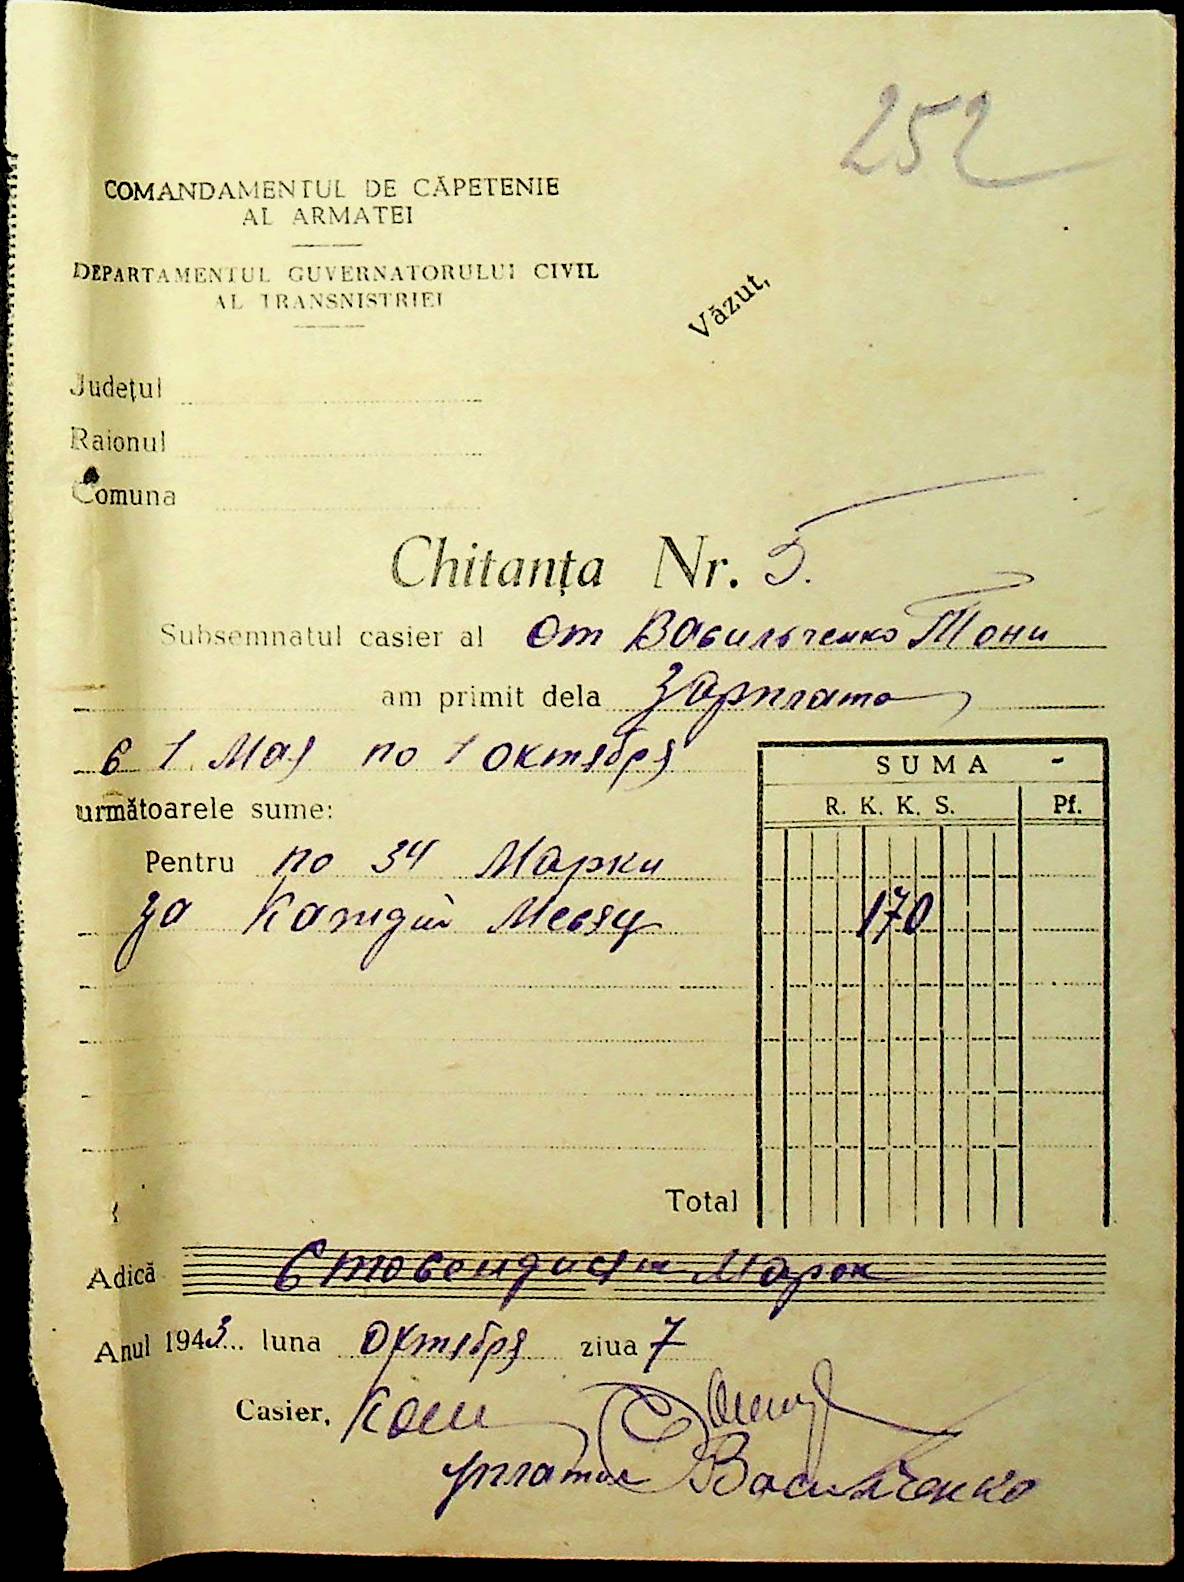 252
COMANDAMENTUL DE CĂPETENIE
AL ARMATEI
DEPARTAMENTUL GUVERNATORULUI CIVIL
AL TRANSNISTRIEI
Văzut,
Județul
Raionul
Comuna
Chitanța Nr. 5.
Subsemnatul casier al От Васильченко Тони
am primit dela зарплата
с 1 Мая по 1 октября
SUMA -
R. K. K. S. Pf.
următoarele sume:
Pentru по 34 Марки
за Каждий Месяц 170
Total
Adică Стосемдисят Марок
Anul 1943... luna Октября ziua 7
Casier,
уплатил Васильченко